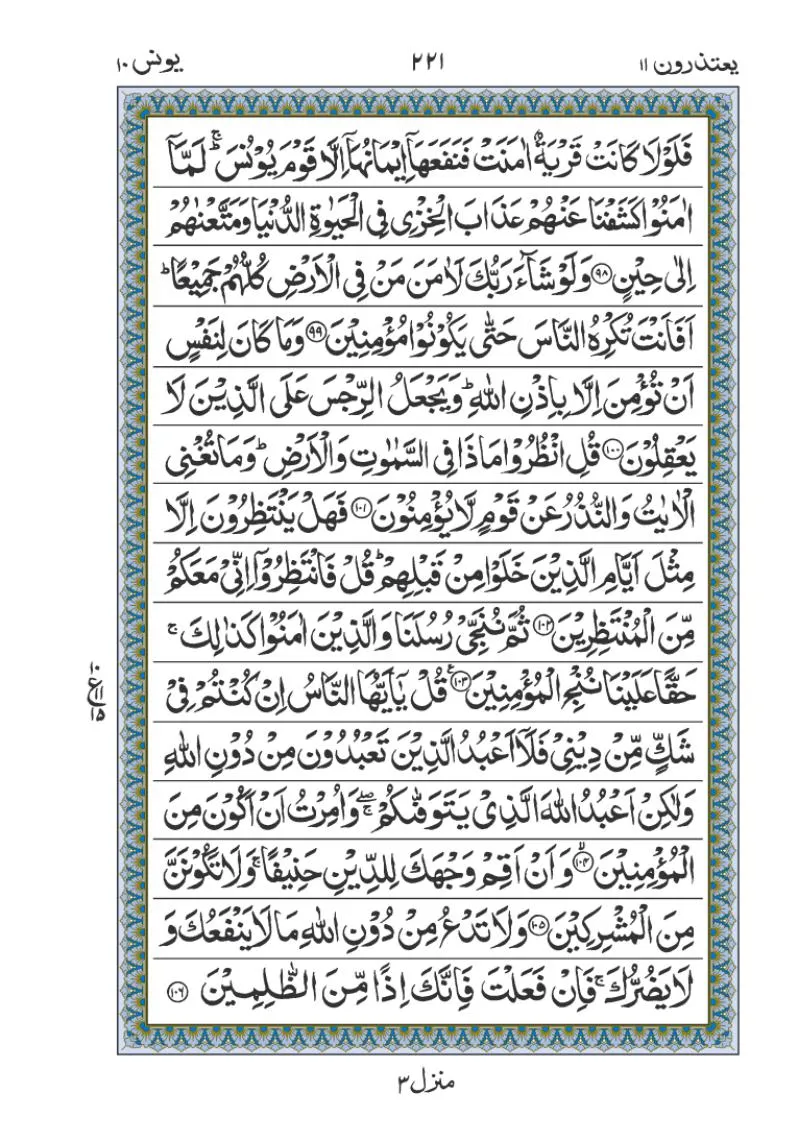 یعتذرون ۱۱ ۲۲۱ یونس ۱۰
فَلَوْلَا كَانَتْ قَرْيَةٌ اٰمَنَتْ فَنَفَعَهَاۤ اِيْمَانُهَاۤ اِلَّا قَوْمَ يُوْنُسَ ؕۚ لَمَّاۤ
اٰمَنُوْا كَشَفْنَا عَنْهُمْ عَذَابَ الْخِزْىِ فِى الْحَيٰوةِ الدُّنْيَا وَمَتَّعْنٰهُمْ
اِلٰى حِيْنٍ ﴿۹۸﴾ وَلَوْ شَآءَ رَبُّكَ لَاٰمَنَ مَنْ فِى الْاَرْضِ كُلُّهُمْ جَمِيْعًا ؕ
اَفَاَنْتَ تُكْرِهُ النَّاسَ حَتّٰى يَكُوْنُوْا مُؤْمِنِيْنَ ﴿۹۹﴾ وَمَا كَانَ لِنَفْسٍ
اَنْ تُؤْمِنَ اِلَّا بِاِذْنِ اللّٰهِ ؕ وَيَجْعَلُ الرِّجْسَ عَلَى الَّذِيْنَ لَا
يَعْقِلُوْنَ ﴿۱۰۰﴾ قُلِ انْظُرُوْا مَاذَا فِى السَّمٰوٰتِ وَالْاَرْضِ ؕ وَمَا تُغْنِى
الْاٰيٰتُ وَالنُّذُرُ عَنْ قَوْمٍ لَّا يُؤْمِنُوْنَ ﴿۱۰۱﴾ فَهَلْ يَنْتَظِرُوْنَ اِلَّا
مِثْلَ اَيَّامِ الَّذِيْنَ خَلَوْا مِنْ قَبْلِهِمْ ؕ قُلْ فَانْتَظِرُوْۤا اِنِّىْ مَعَكُمْ
مِّنَ الْمُنْتَظِرِيْنَ ﴿۱۰۲﴾ ثُمَّ نُنَجِّىْ رُسُلَنَا وَالَّذِيْنَ اٰمَنُوْا كَذٰلِكَ ۚ
حَقًّا عَلَيْنَا نُنْجِ الْمُؤْمِنِيْنَ ﴿۱۰۳﴾ قُلْ يٰۤاَيُّهَا النَّاسُ اِنْ كُنْتُمْ فِىْ
شَكٍّ مِّنْ دِيْنِىْ فَلَاۤ اَعْبُدُ الَّذِيْنَ تَعْبُدُوْنَ مِنْ دُوْنِ اللّٰهِ
وَلٰكِنْ اَعْبُدُ اللّٰهَ الَّذِىْ يَتَوَفّٰٮكُمْ ۖۚ وَاُمِرْتُ اَنْ اَكُوْنَ مِنَ
الْمُؤْمِنِيْنَ ﴿۱۰۴﴾ وَاَنْ اَقِمْ وَجْهَكَ لِلدِّيْنِ حَنِيْفًا ۚ وَلَا تَكُوْنَنَّ
مِنَ الْمُشْرِكِيْنَ ﴿۱۰۵﴾ وَلَا تَدْعُ مِنْ دُوْنِ اللّٰهِ مَا لَا يَنْفَعُكَ وَ
لَا يَضُرُّكَ ۚ فَاِنْ فَعَلْتَ فَاِنَّكَ اِذًا مِّنَ الظّٰلِمِيْنَ ﴿۱۰۶﴾
منزل ۳